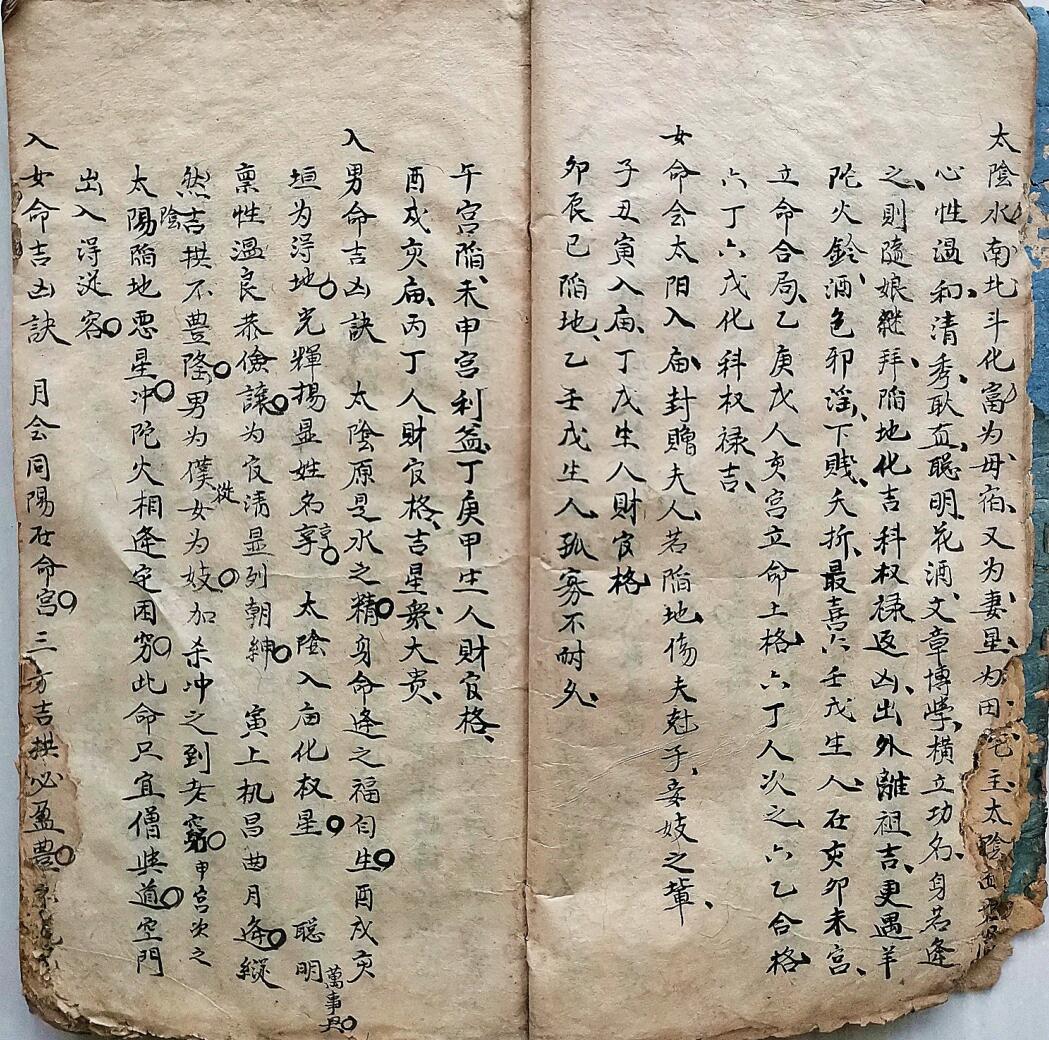 太陰水南北斗化富为母宿、又为妻星、为田宅主、太陰面
心性温和、清秀耿直、聪明、花酒、文章博学、横立功名、身若逢
之、則隨娘継拜、陥地化吉科权禄返凶、出外離祖吉、更遇羊
陀火鈴、酒色邪淫、下賤、夭折、最喜六壬戊生人、在亥卯未宫、
立命合局、乙庚戊人亥宫立命上格、六丁人次之、六乙合格
六丁六戊化科权禄吉、
女命会太阳入庙、封贈夫人、若陥地、伤夫尅子、妾妓之輩、
子丑寅入庙、丁戊生人財官格
卯辰巳陥地、乙壬戊生人孤寡不耐久、
午宫陥、未申宫利益、丁庚甲生人財官格、
酉戌亥庙、丙丁人財官格、吉星衆、大贵、
入男命吉凶訣 太陰原是水之精身命逢之福自生酉戌亥
垣为得地光輝揚显姓名享亨 太陰入庙化权星 聪明萬事
禀性温良恭儉讓为官清显列朝紳 寅上机昌曲月逢縱
然吉拱不豊隆男为僕從女为妓加杀冲之到老窮申宫次之
太陽陰陥地恶星冲陀火相逢定困穷此命只宜僧與道空門
出入得從容
入女命吉凶訣 月会同陽在命宫三方吉拱必盈豊